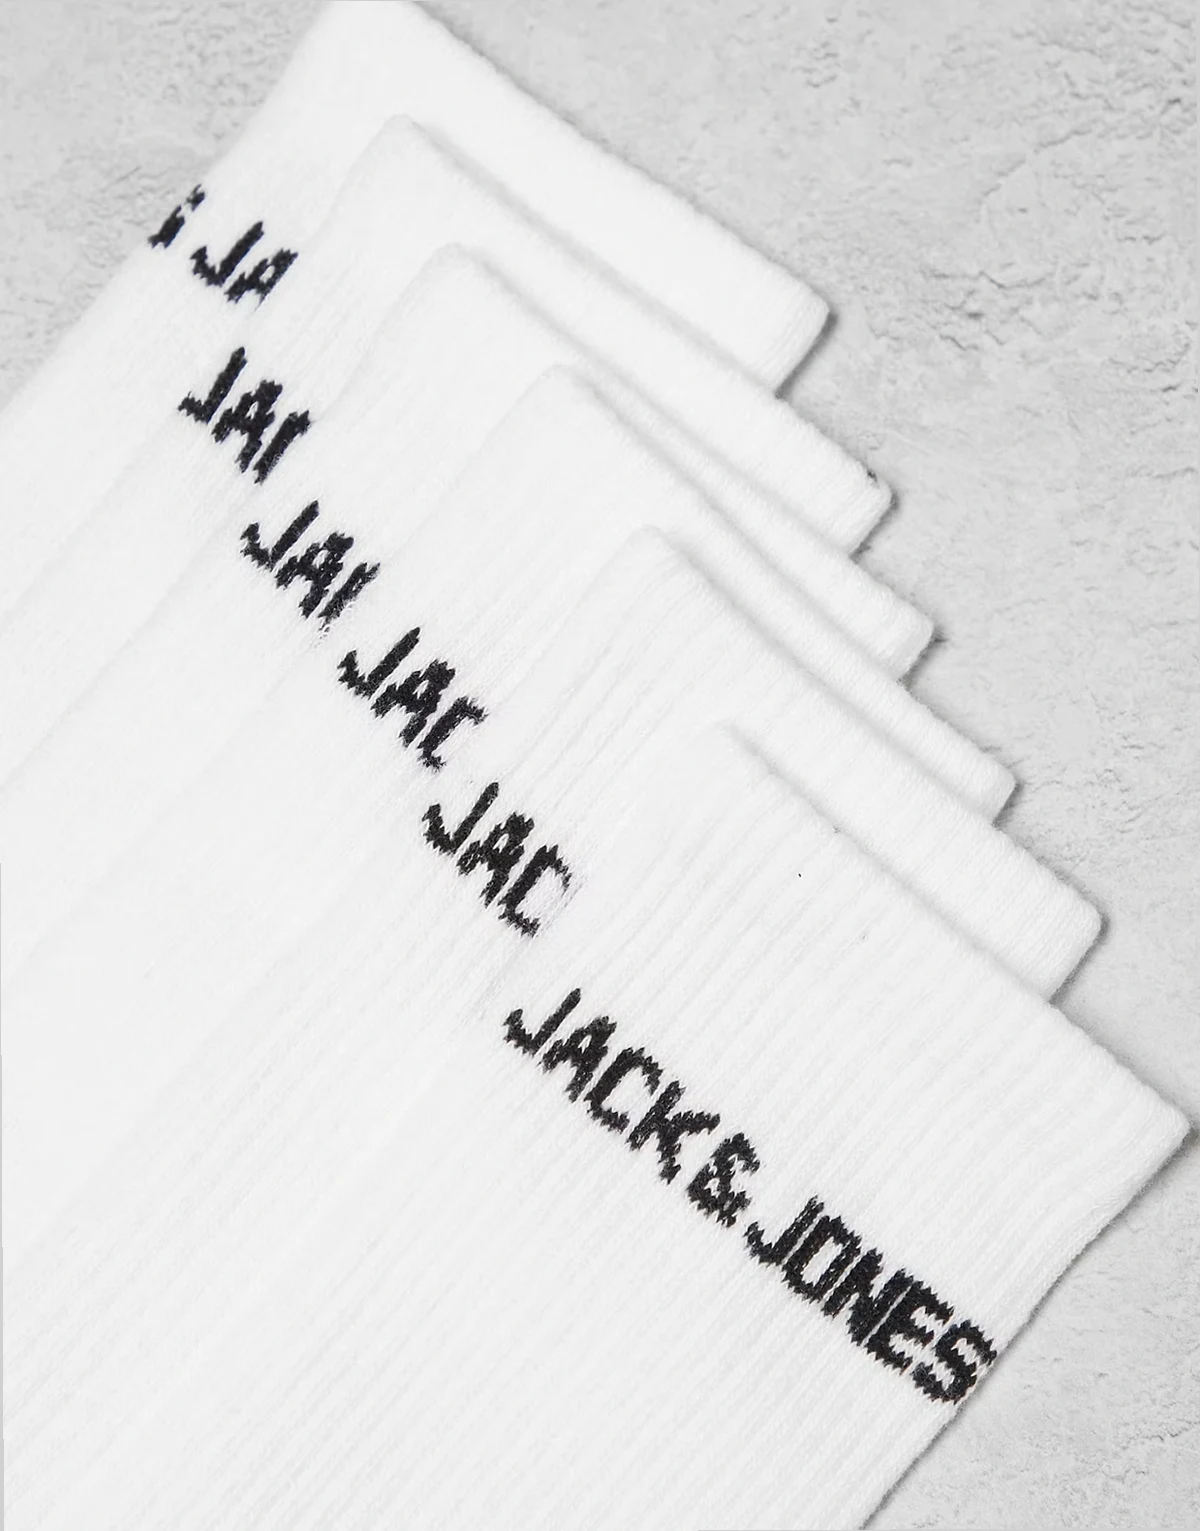 JA
JA
JA
JAC
JAC
JACK & JONES